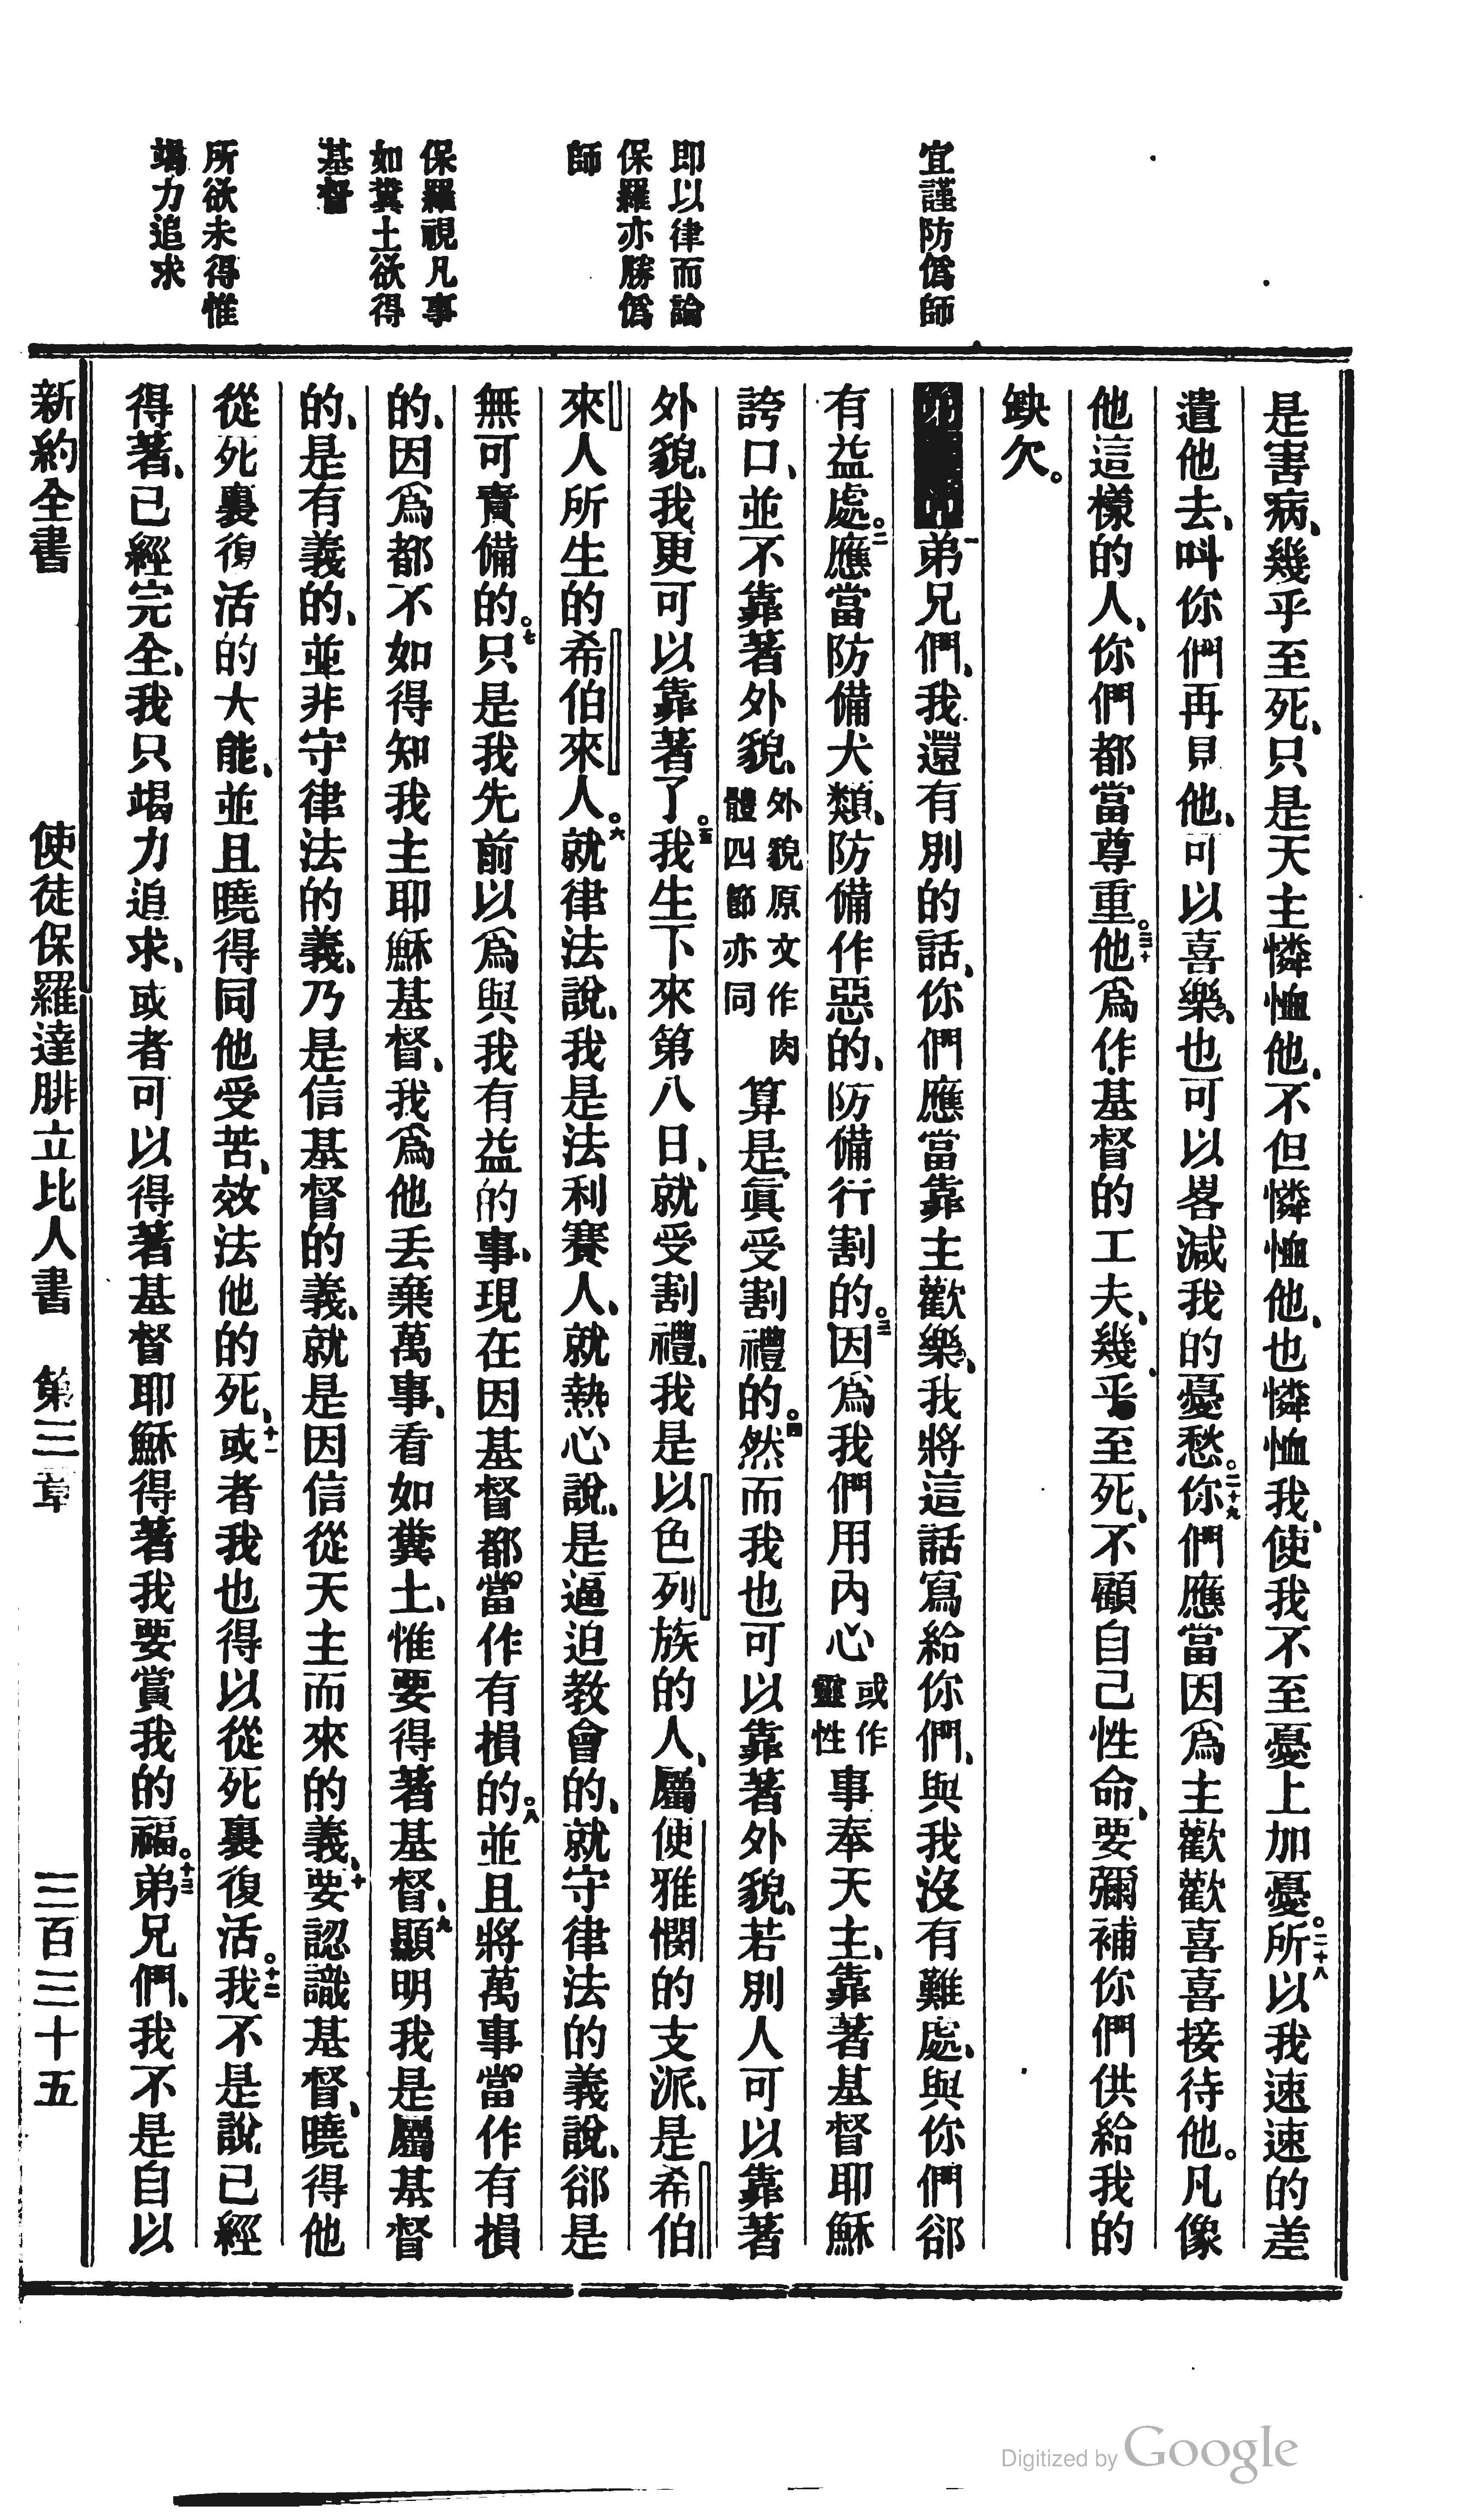 宜謹防僞師
即以律而論
保羅亦勝僞
師
保羅視凡事
如糞土欲得
基督
所欲未得惟
竭力追求
是害病、幾乎至死、只是天主憐恤他、不但憐恤他、也憐恤我、使我不至憂上加憂。二十八所以我速速的差
遣他去、叫你們再見他、可以喜樂、也可以畧減我的憂愁。二十九你們應當因爲主歡歡喜喜接待他。凡像
他這樣的人、你們都當尊重。三十他爲作基督的工夫、幾乎至死、不顧自己性命、要彌補你們供給我的
缺欠。
一弟兄們、我還有別的話、你們應當靠主歡樂、我將這話寫給你們、與我沒有難處、與你們郤
有益處。二應當防備犬類、防備作惡的、防備行割的。三因爲我們用內心或作靈性事奉天主、靠著基督耶穌
誇口、並不靠著外貌、外貌原文作肉體四節亦同算是眞受割禮的。四然而我也可以靠著外貌、若別人可以靠著
外貌、我更可以靠著了。五我生下來第八日、就受割禮、我是以色列族的人、屬便雅憫的支派、是希伯
來人所生的希伯來人。六就律法說、我是法利賽人、就熱心說、是逼迫教會的、就守律法的義說、郤是
無可責備的。七只是我先前以爲與我有益的事、現在因基督都當作有損的。八並且將萬事當作有損
的、因爲都不如得知我主耶穌基督、我爲他丢棄萬事、看如糞土、惟要得著基督、九顯明我是屬基督
的、是有義的、並非守律法的義、乃是信基督的義、就是因信從天主而來的義、十要認識基督、曉得他
從死裏復活的大能、並且曉得同他受苦、效法他的死、十一或者我也得以從死裏復活。十二我不是說已經
得著、已經完全、我只竭力追求、或者可以得著基督耶穌得著我要賞我的福。十三弟兄們、我不是自以
新約全書 使徒保羅達腓立比人書 第三章 三百三十五
Digitized by Google